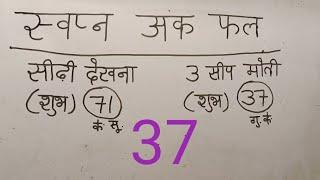 स्वप्न अक फल
सीढ़ी देखना
(शुभ) 71
के सू.
3 सीप मोती
(शुभ) 37
गु. के
37